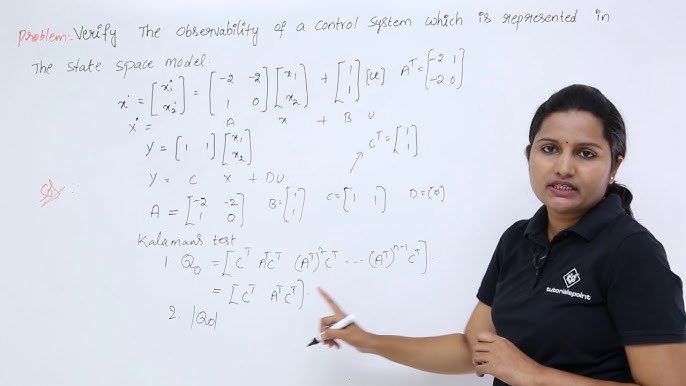 Problem:- Verify The observability of a control system which is represented in
The state space model.
ẋ = [ẋ₁ ẋ₂] = [-2 -2 1 0] [x₁ x₂] + [1 1] [u] Aᵀ = [-2 1 -2 0]
ẋ = A x + B U
Cᵀ = [1 1]
Y = [1 1] [x₁ x₂]
Y = C x + DU
Sol :
A = [-2 -2 1 0] B = [1 1] C = [1 1] D = [0]
Kalamans test
1. Q₀ = [Cᵀ AᵀCᵀ (Aᵀ)²Cᵀ ... (Aᵀ)ⁿ⁻¹Cᵀ].
= [Cᵀ AᵀCᵀ].
2. |Q₀|
tutorialspoint